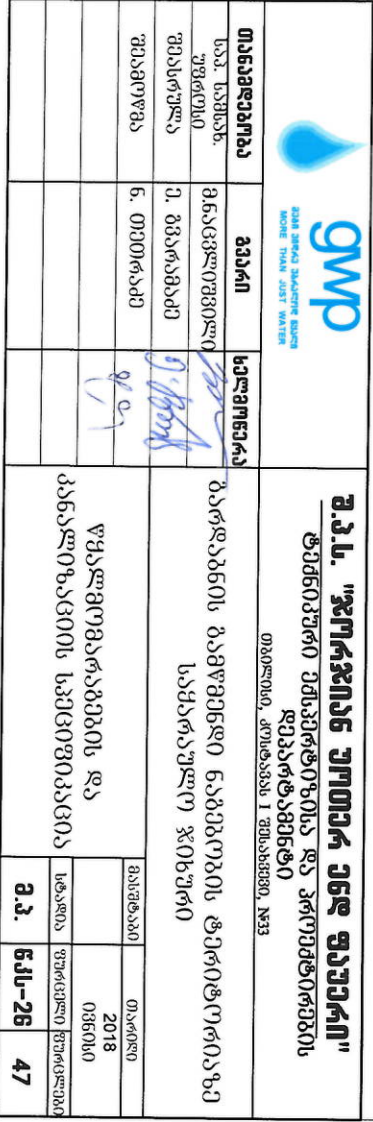 gwp
მეტი ვიდრე უბრალოდ წყალი
MORE THAN JUST WATER
შ.პ.ს. "ჯორჯიან უოთერ ენდ ფაუერი"
ტექნიკური ექსპერტიზისა და პროექტირების
დეპარტამენტი
თბილისი, კოსტავას I შესახვევი, №33
თანამდებობა გვარი ხელმოწერა
საპ. სამსახ. უფროსი მ.ნაცვლიშვილი
შეასრულა ე. გვარამაძე
შეამოწმა ნ. თეთრაძე
გარდაბნის გამწმენდი ნაგებობის ტერიტორიაზე
საყარაულო ჯიხური
წყალმომარაგების და
კანალიზაციის სპეციფიკაცია
მასშტაბი თარიღი
2018
ივნისი
სტადია ფურცელი ფურცლები
მ.პ. წკს-26 47